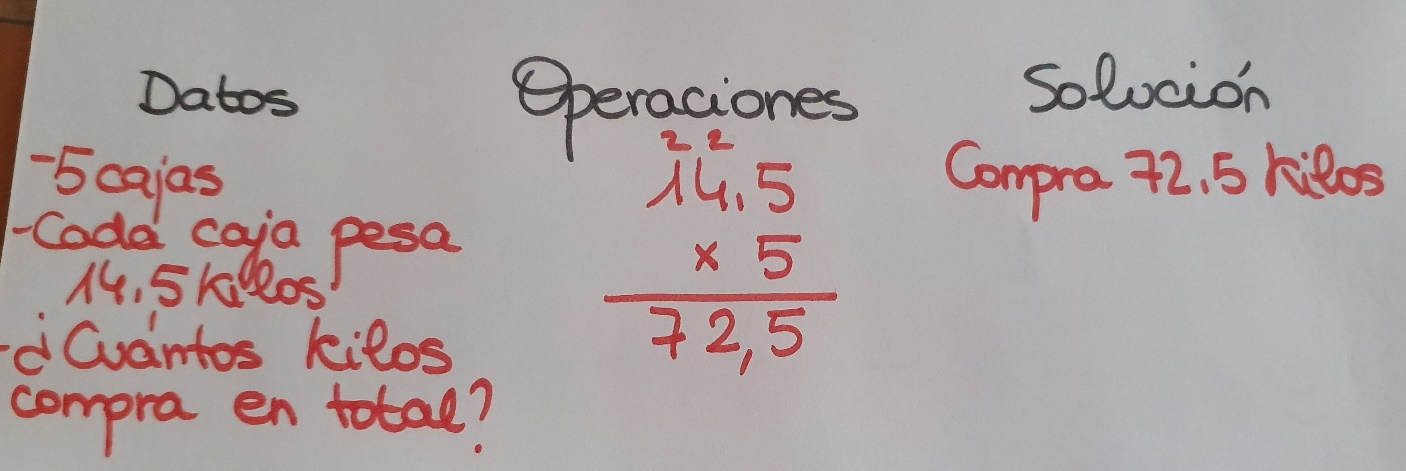 Datos
-5 cajas
-Cada caja pesa
14,5 kilos
-¿Cuántos kilos
compra en total?
Operaciones
2 2
14,5
x 5
72,5
Solución
Compra 72,5 kilos